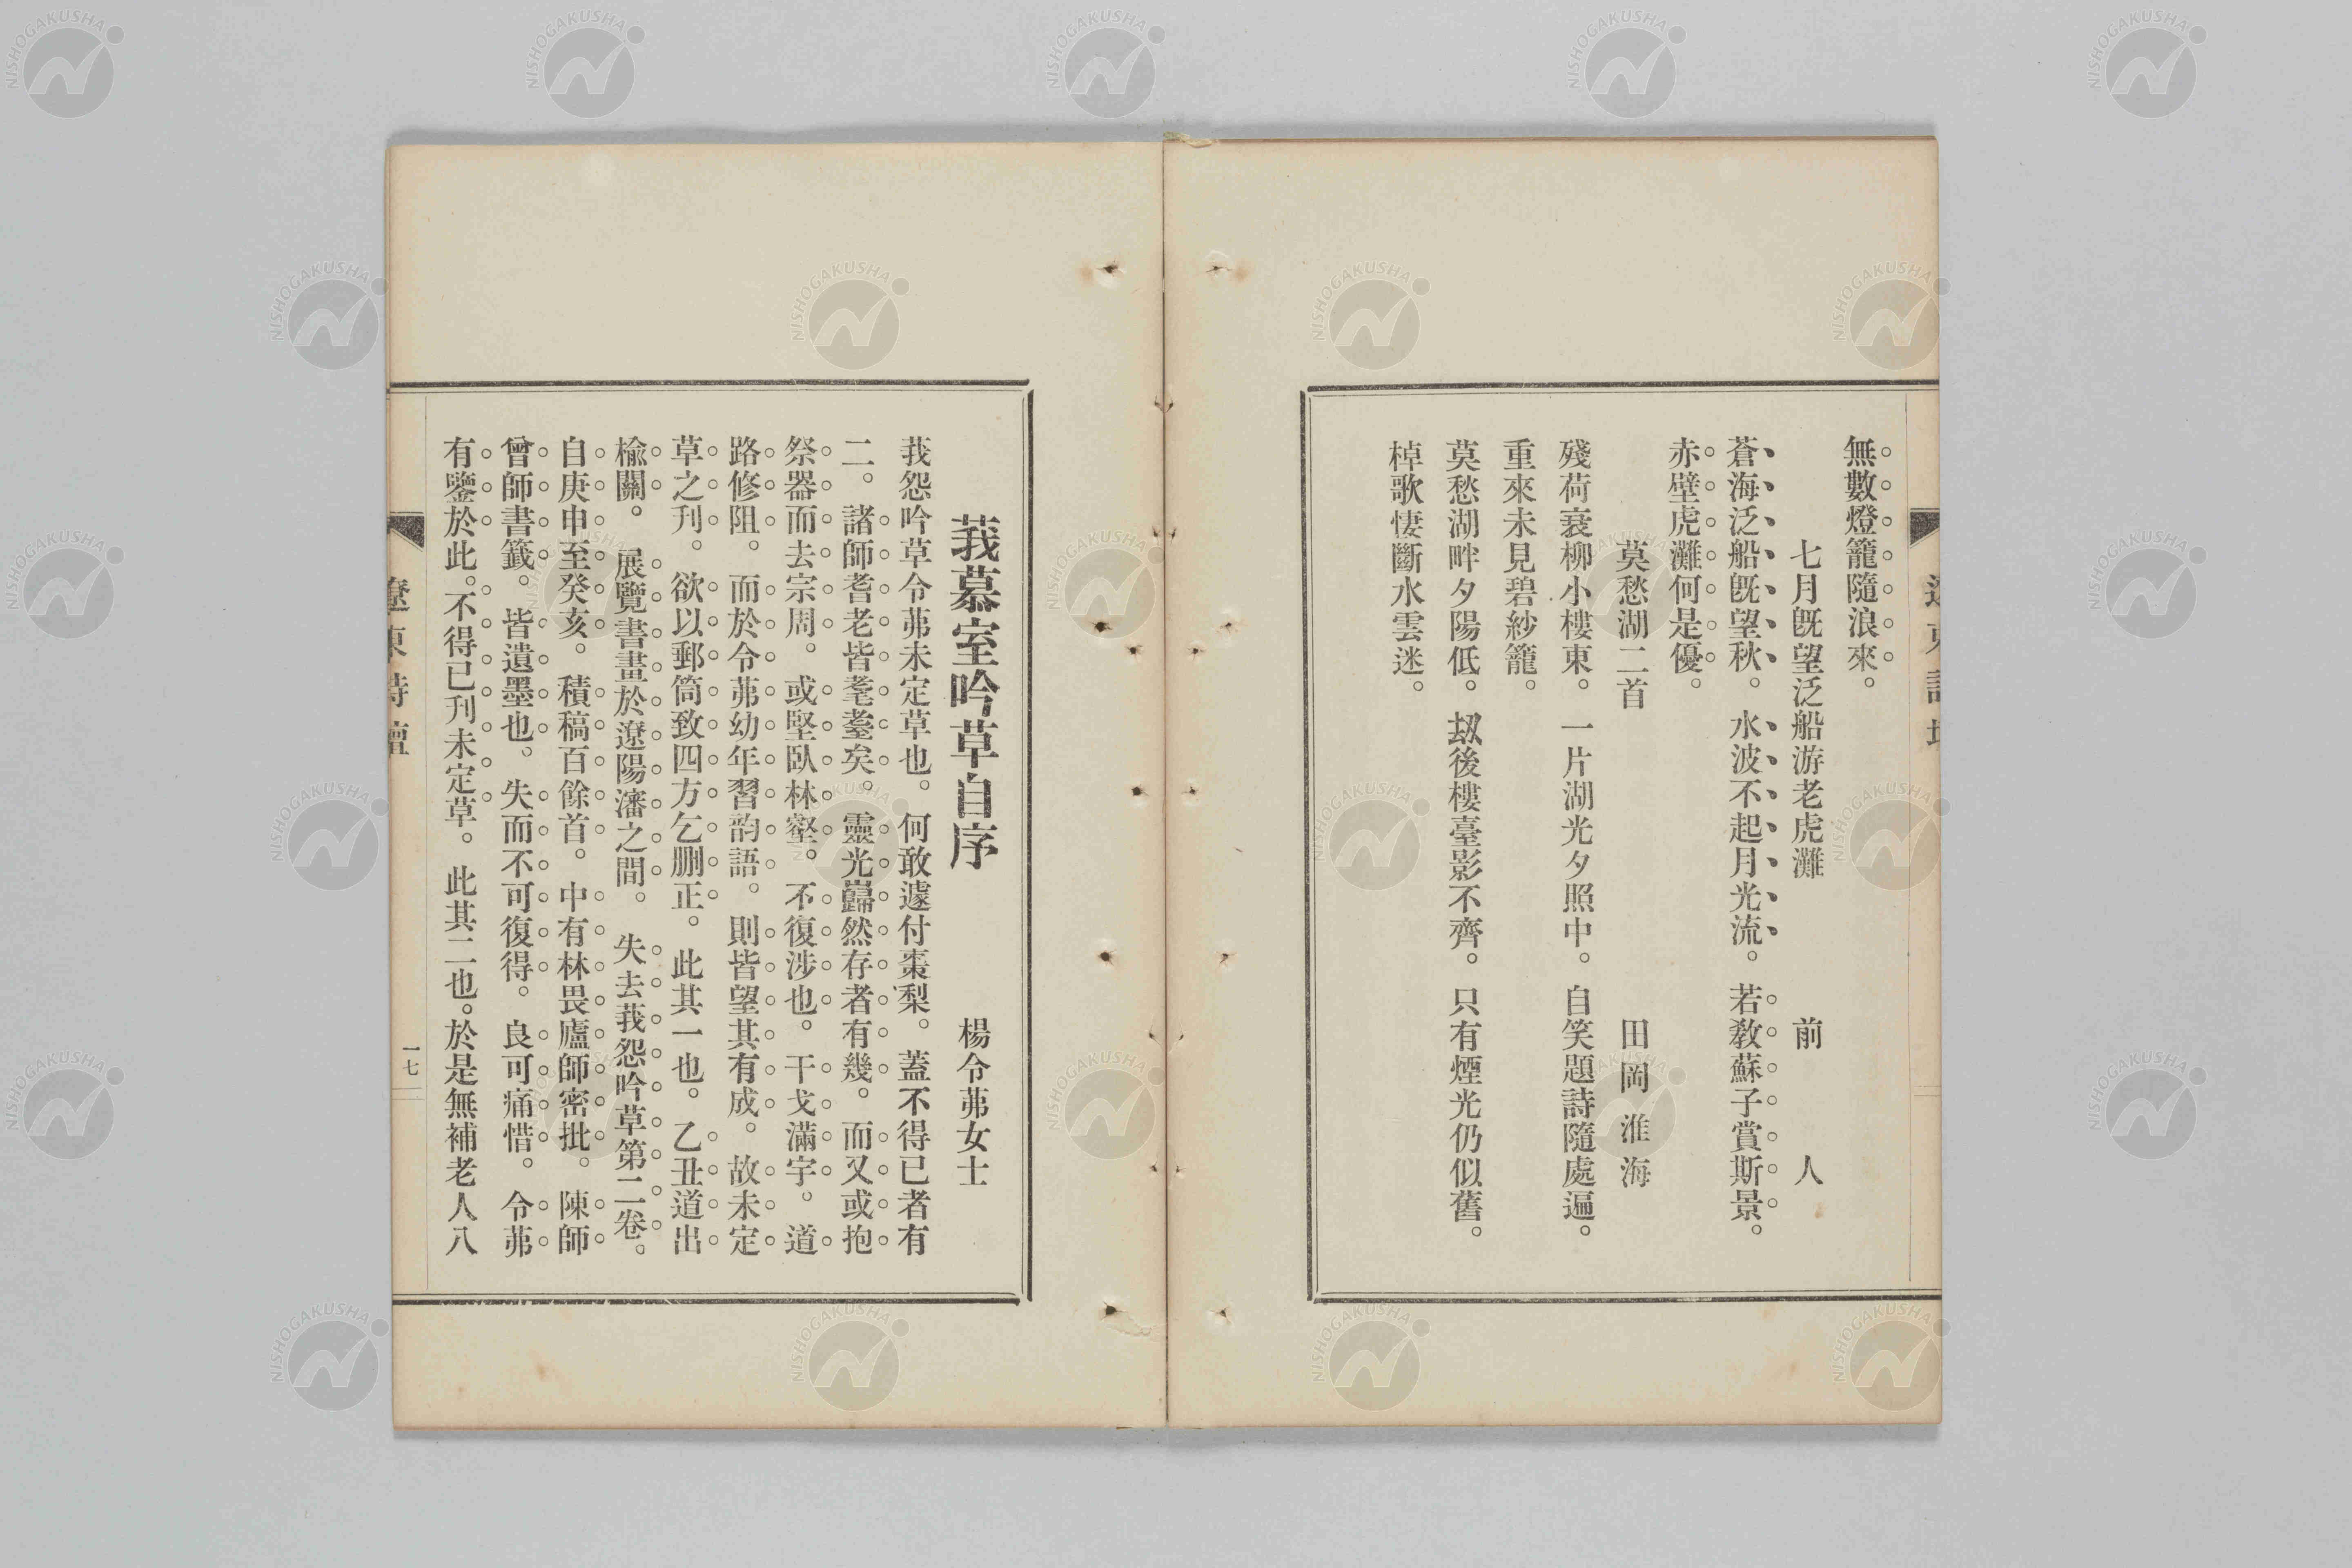 無數燈籠隨浪來。
七月旣望泛船游老虎灘　前　人
蒼海泛船旣望秋。水波不起月光流。若敎蘇子賞斯景。
赤壁虎灘何是優。
莫愁湖二首　田岡淮海
殘荷衰柳小樓東。一片湖光夕照中。自笑題詩隨處遍。
重來未見碧紗籠。
莫愁湖畔夕陽低。刼後樓臺影不齊。只有煙光仍似舊。
棹歌悽斷水雲迷。
莪慕室吟草自序
楊令茀女士
莪怨吟草令茀未定草也。何敢遽付棗梨。蓋不得已者有
二。諸師耆老皆耄耋矣。靈光巋然存者有幾。而又或抱
祭器而去宗周。或堅臥林壑。不復涉也。干戈滿宇。道
路修阻。而於令茀幼年習韵語。則皆望其有成。故未定
草之刋。欲以郵筒致四方乞删正。此其一也。乙丑道出
楡關。展覽書畫於遼陽瀋之間。失去莪怨吟草第二卷。
自庚申至癸亥。積稿百餘首。中有林畏廬師密批。陳師
曾師書籤。皆遺墨也。失而不可復得。良可痛惜。令茀
有鑒於此。不得已刋未定草。此其二也。於是無補老人八
遼東詩壇
一七
NISHOGAKUSHA